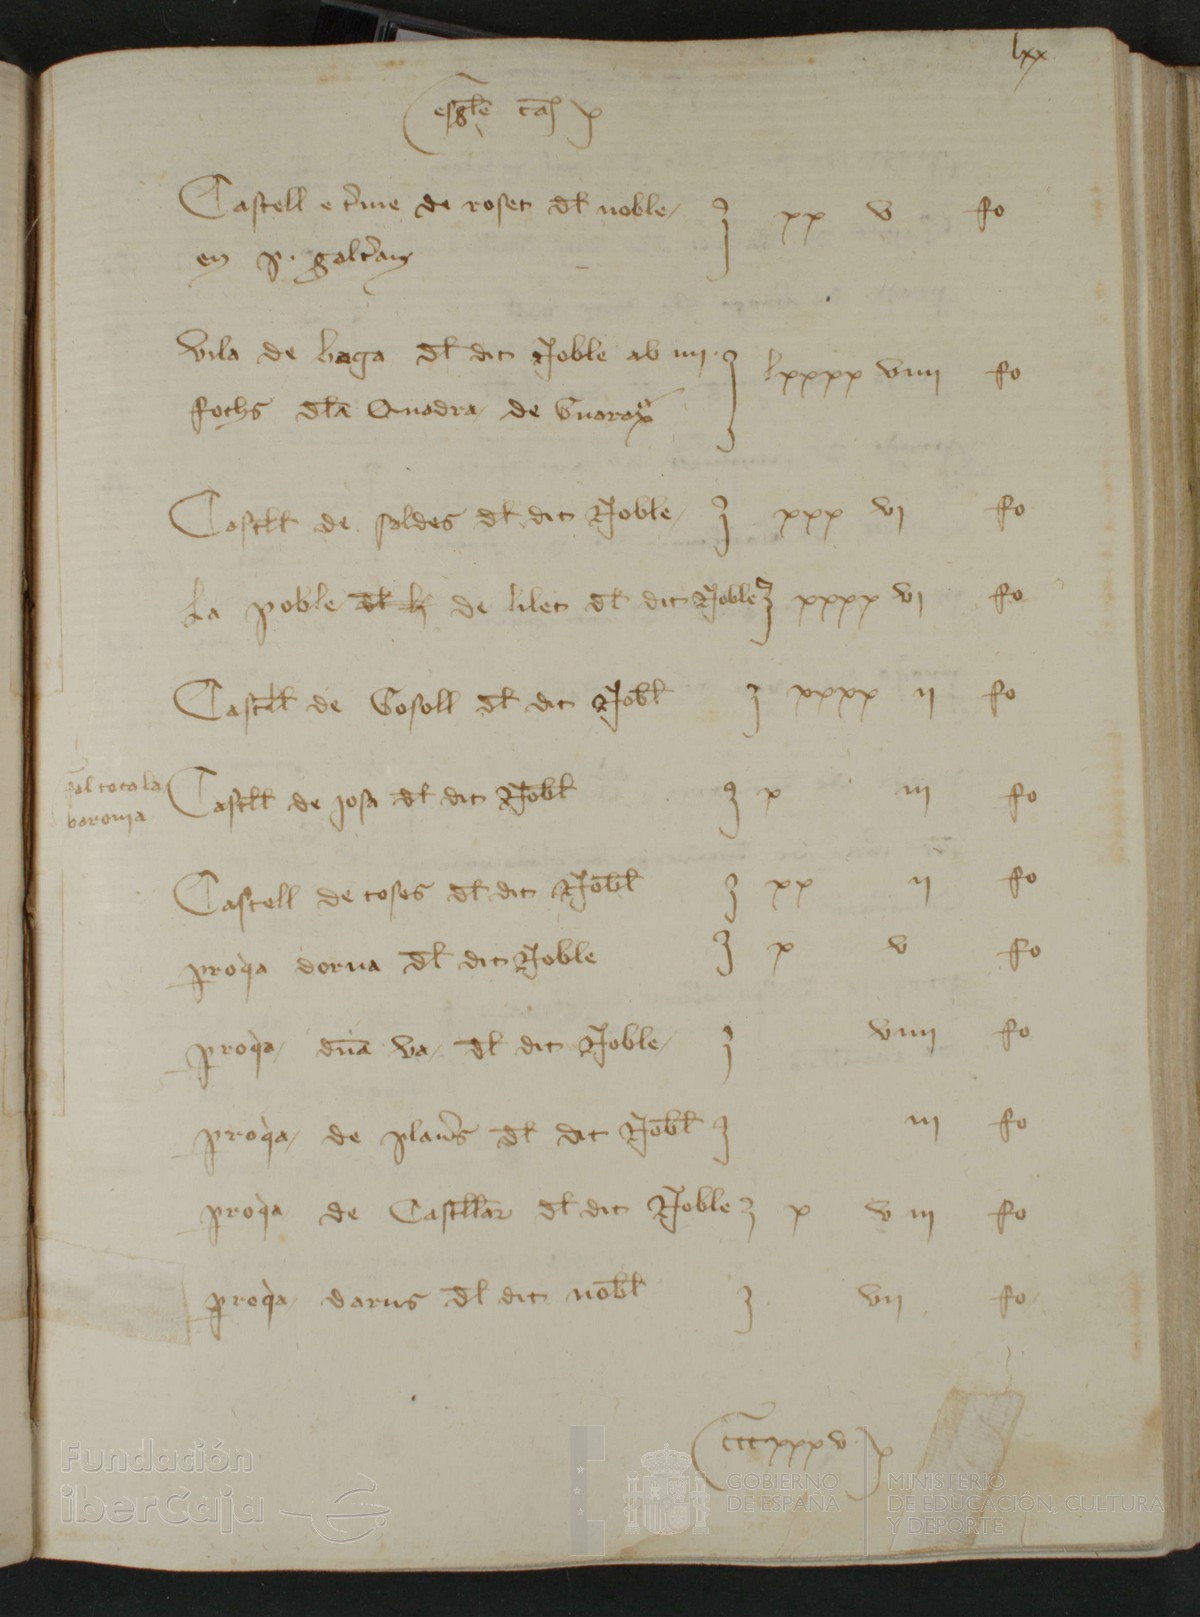 lxx
esgle cas
Castell e t'me de roset dl noble
en p. galc'an
xx v fo
vila de baga dl dit Noble ab iiii
fochs dla Quadra de Guarox
lxxxx viiii fo
Castll de saldes dl dit Noble xxx vi fo
La poble dl li de lilet dl dit Noble xxxx vi fo
Castll de Gosoll dl dit Nobl xxxx ii fo
toto la
baronia
Castll de josa dl dit Nobl x iii fo
Castell de toses dl dit Nobl xx ii fo
proqa dorria dl dit Noble x v fo
proqa dna va dl dit Noble viiii fo
proqa de plan's dl dit Nobl iii fo
proqa de Castllar dl dit Noble x v iii fo
proqa darus dl dit nobl vii fo
cccxxxv
Fundación
iberCaja
GOBIERNO
DE ESPAÑA
MINISTERIO
DE EDUCACIÓN, CULTURA
Y DEPORTE